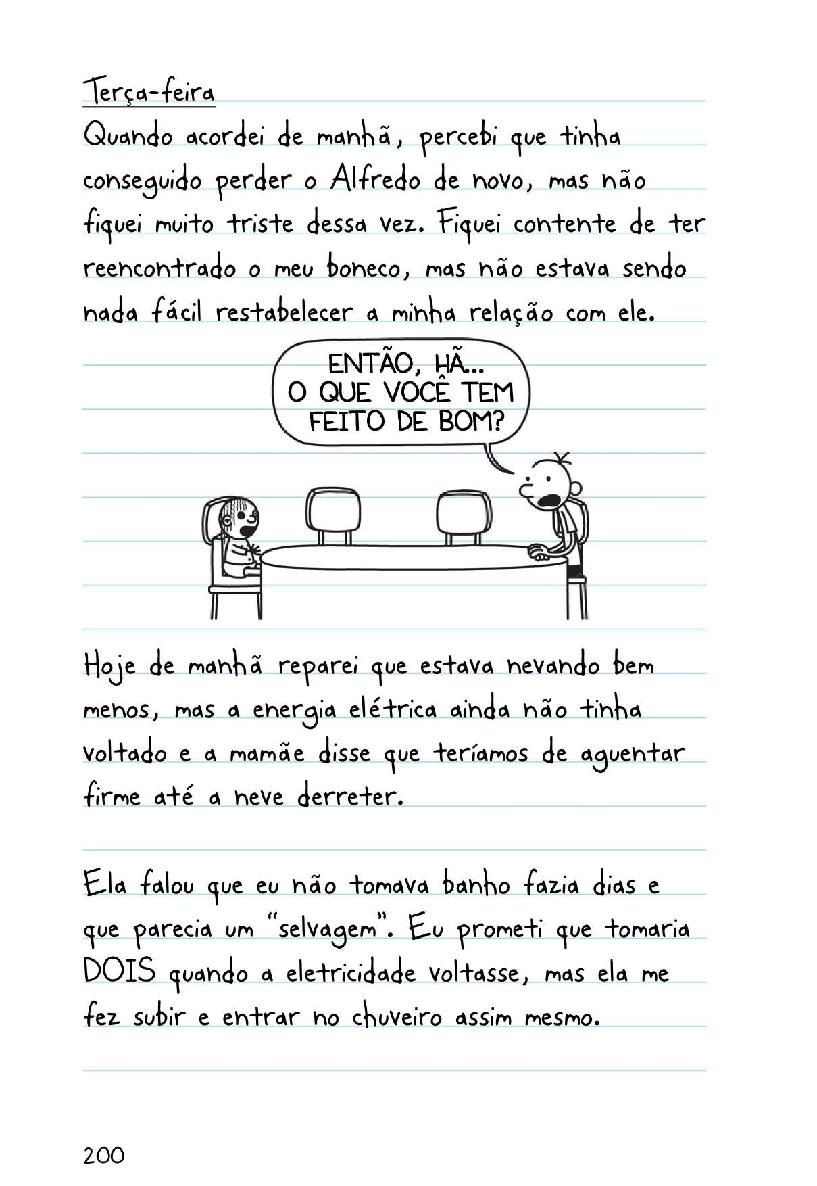 Terça-feira
Quando acordei de manhã, percebi que tinha
conseguido perder o Alfredo de novo, mas não
fiquei muito triste dessa vez. Fiquei contente de ter
reencontrado o meu boneco, mas não estava sendo
nada fácil restabelecer a minha relação com ele.
ENTÃO, HÃ...
O QUE VOCÊ TEM
FEITO DE BOM?
Hoje de manhã reparei que estava nevando bem
menos, mas a energia elétrica ainda não tinha
voltado e a mamãe disse que teríamos de aguentar
firme até a neve derreter.
Ela falou que eu não tomava banho fazia dias e
que parecia um “selvagem”. Eu prometi que tomaria
DOIS quando a eletricidade voltasse, mas ela me
fez subir e entrar no chuveiro assim mesmo.
200